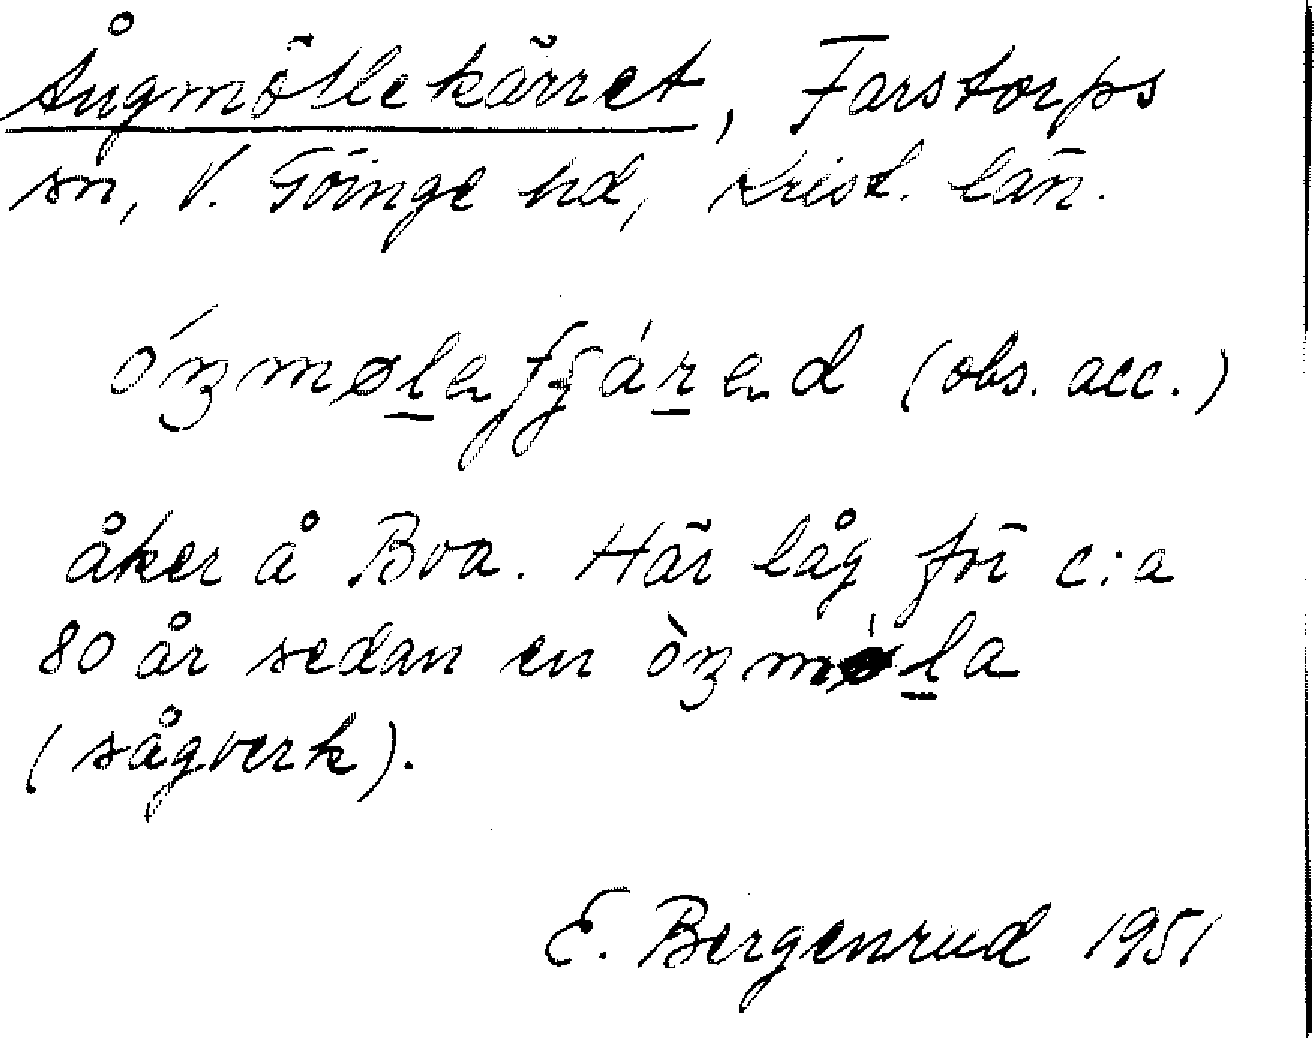 Ångmöllekärret, Farstorps
sn, V. Göinge hd, Krist. län.
(obs. acc.)
åker å Boa. Här låg för c:a
80 år sedan en
(sågverk).
E. Bergenrud 1951